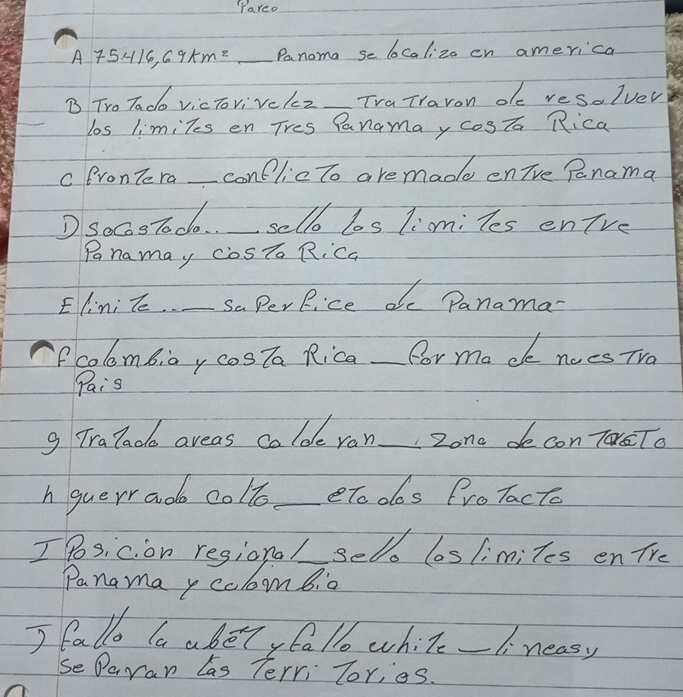 Pareo
A 75416,69km² __ Panama se localiza en america
B Tro Tado victorivelez __ Tratraron de resolver
los limites en Tres Panama y costa Rica
C frontera __ conflicto aremado entre Panama
D socostado.. __ sello los limites entre
Panama y costa Rica
E linite... __ saperfice de Panama-
f colombia y costa Rica __ forma de nuestra
Pais
g Tratado areas calderan __ zona de contacto
h guerrado colto __ etados frotacto
I Posicion regional __ sello los limites entre
Panama y colombia
J fallo la abet y fallo while - lineasy
se Paran las Territorios.